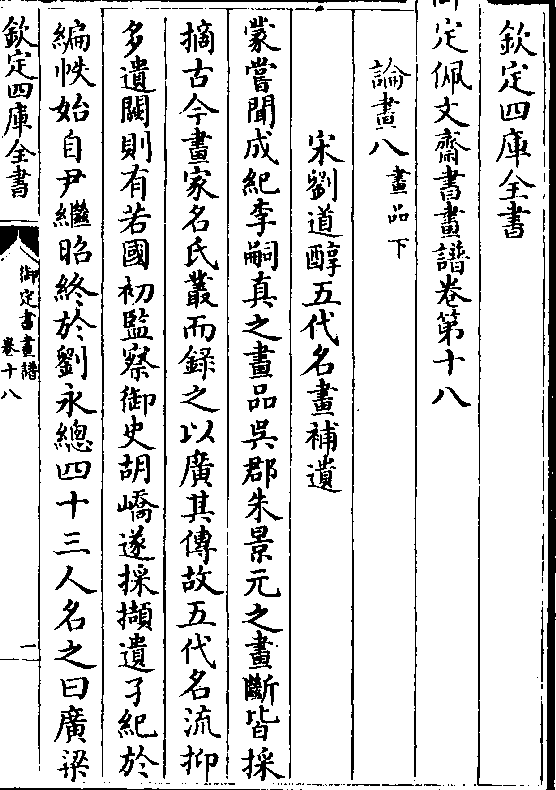 欽定四庫全書
御定佩文齋書畫譜卷第十八
論畫八 畫品下
宋劉道醇五代名畫補遺
蒙嘗聞成紀李嗣真之畫品吳郡朱景元之畫斷皆採
摘古今畫家名氏叢而錄之以廣其傳故五代名流抑
多遺闕則有若國初監察御史胡嶠遂採擷遺孑紀於
編帙始自尹繼昭終於劉永總四十三人名之曰廣梁
欽定四庫全書
御定書畫譜
卷十八
一